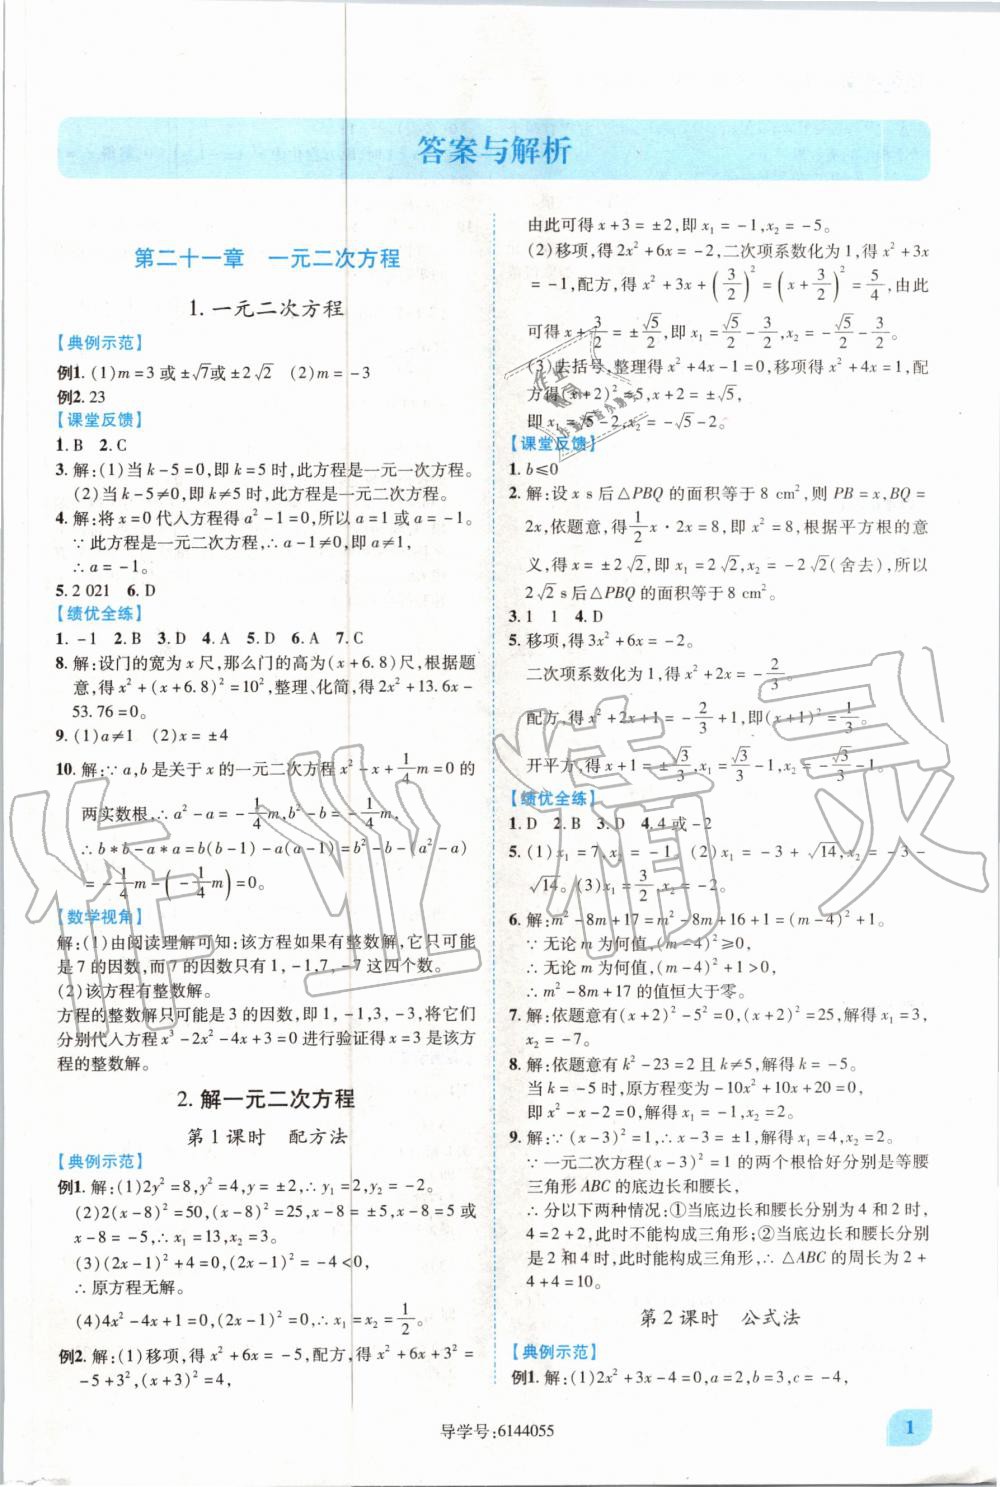 答案与解析
第二十一章　一元二次方程
1. 一元二次方程
【典例示范】
例1. (1)m=3或±√7或±2√2　(2)m=-3
例2. 23
【课堂反馈】
1. B　2. C
3. 解:(1)当k-5=0,即k=5时,此方程是一元一次方程。
(2)当k-5≠0,即k≠5时,此方程是一元二次方程。
4. 解:将x=0代入方程得a²-1=0,所以a=1或a=-1。
∵此方程是一元二次方程,∴a-1≠0,即a≠1,
∴a=-1。
5. 2 021　6. D
【绩优全练】
1. -1　2. B　3. D　4. A　5. D　6. A　7. C
8. 解:设门的宽为x尺,那么门的高为(x+6.8)尺,根据题
意,得x²+(x+6.8)²=10²,整理、化简,得2x²+13.6x-
53.76=0。
9. (1)a≠1　(2)x=±4
10. 解:∵a,b是关于x的一元二次方程x²-x+1/4m=0的
两实数根,∴a²-a=-1/4m,b²-b=-1/4m,
∴b*b-a*a=b(b-1)-a(a-1)=b²-b-(a²-a)
=-1/4m-(-1/4m)=0。
【数学视角】
解:(1)由阅读理解可知:该方程如果有整数解,它只可能
是7的因数,而7的因数只有1,-1,7,-7这四个数。
(2)该方程有整数解。
方程的整数解只可能是3的因数,即1,-1,3,-3,将它们
分别代入方程x³-2x²-4x+3=0进行验证得x=3是该方
程的整数解。
2. 解一元二次方程
第1课时　配方法
【典例示范】
例1. 解:(1)2y²=8,y²=4,y=±2,∴y₁=2,y₂=-2。
(2)2(x-8)²=50,(x-8)²=25,x-8=±5,x-8=5或
x-8=-5,∴x₁=13,x₂=3。
(3)(2x-1)²+4=0,(2x-1)²=-4<0,
∴原方程无解。
(4)4x²-4x+1=0,(2x-1)²=0,∴x₁=x₂=1/2。
例2. 解:(1)移项,得x²+6x=-5,配方,得x²+6x+3²=
-5+3²,(x+3)²=4,
由此可得x+3=±2,即x₁=-1,x₂=-5。
(2)移项,得2x²+6x=-2,二次项系数化为1,得x²+3x
=-1,配方,得x²+3x+(3/2)²=(x+3/2)²=5/4,由此
可得x+3/2=±√5/2,即x₁=√5/2-3/2,x₂=-√5/2-3/2。
(3)去括号,整理得x²+4x-1=0,移项得x²+4x=1,配
方得(x+2)²=5,x+2=±√5,
即x₁=√5-2,x₂=-√5-2。
【课堂反馈】
1. b≤0
2. 解:设x s后△PBQ的面积等于8 cm²,则PB=x,BQ=
2x,依题意,得1/2x·2x=8,即x²=8,根据平方根的意
义,得x=±2√2,即x₁=2√2,x₂=-2√2(舍去),所以
2√2 s后△PBQ的面积等于8 cm²。
3. 1　1　4. D
5. 移项,得3x²+6x=-2。
二次项系数化为1,得x²+2x=-2/3。
配方,得x²+2x+1=-2/3+1,即(x+1)²=1/3。
开平方,得x+1=±√3/3,x₁=√3/3-1,x₂=-√3/3-1。
【绩优全练】
1. D　2. B　3. D　4. 4或-2
5. (1)x₁=7,x₂=-1　(2)x₁=-3+√14,x₂=-3-
√14。(3)x₁=3/2,x₂=
6. 解:m²-8m+17=m²-8m+16+1=(m-4)²+1。
∵无论m为何值,(m-4)²≥0,
∴无论m为何值,(m-4)²+1>0,
∴m²-8m+17的值恒大于零。
7. 解:依题意有(x+2)²-5²=0,(x+2)²=25,解得x₁=3,
x₂=-7。
8. 解:依题意有k²-23=2且k≠5,解得k=-5。
当k=-5时,原方程变为-10x²+10x+20=0,
即x²-x-2=0,解得x₁=2,x₂=-1。
9. 解:∵(x-3)²=1,∴x-3=±1,解得x₁=4,x₂=2。
∵一元二次方程(x-3)²=1的两个根恰好分别是等腰
三角形ABC的底边长和腰长,
∴分以下两种情况:①当底边长和腰长分别为4和2时,
4=2+2,此时不能构成三角形;②当底边长和腰长分别
是2和4时,此时能构成三角形,∴△ABC的周长为2+
4+4=10。
第2课时　公式法
【典例示范】
例1. 解:(1)2x²+3x-4=0,a=2,b=3,c=-4,
导学号:6144055
1
作业精灵